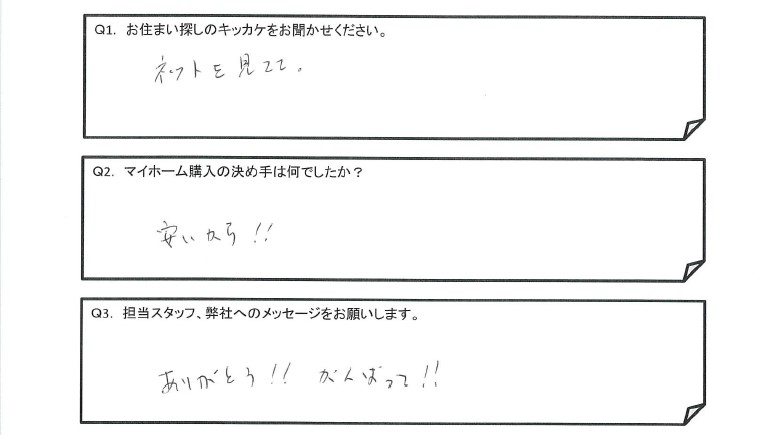 Q1. お住まい探しのキッカケをお聞かせください。
ネットを見てて。
Q2. マイホーム購入の決め手は何でしたか？
安いから!!
Q3. 担当スタッフ、弊社へのメッセージをお願いします。
ありがとう!! がんばって!!